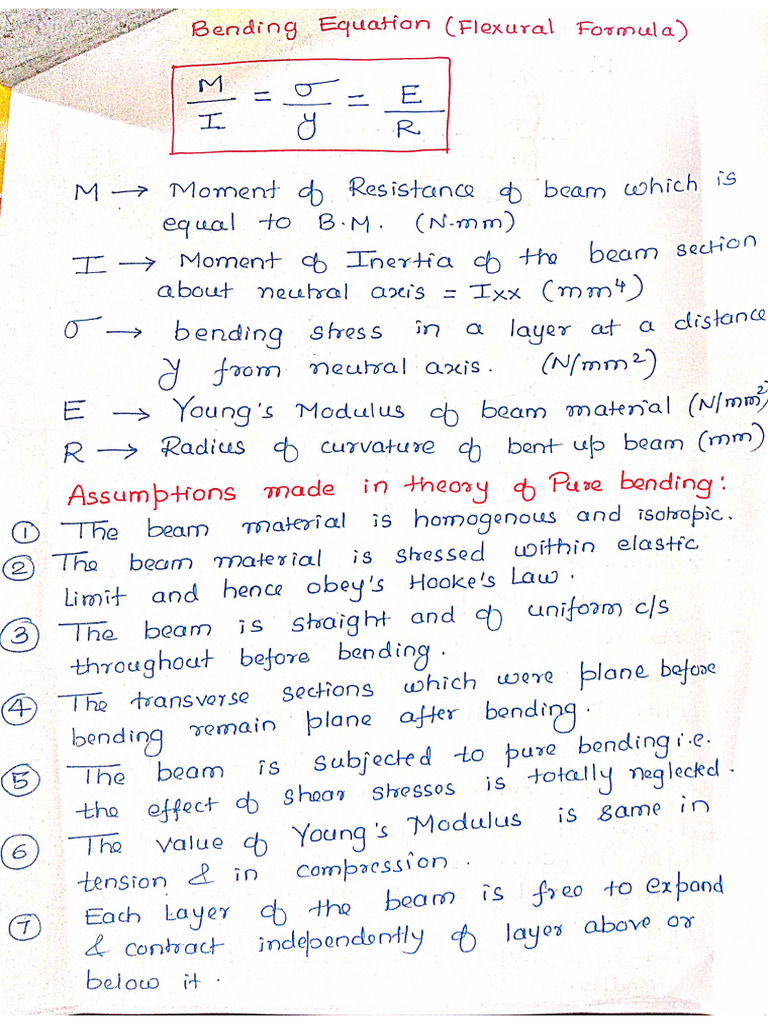 Bending Equation (Flexural Formula)
M/I = σ/y = E/R
M → Moment of Resistance of beam which is
equal to B.M. (N-mm)
I → Moment of Inertia of the beam section
about neutral axis = Ixx (mm⁴)
σ → bending stress in a layer at a distance
y from neutral axis. (N/mm²)
E → Young's Modulus of beam material (N/mm²)
R → Radius of curvature of bent up beam (mm)
Assumptions made in theory of Pure bending:
① The beam material is homogenous and isotropic.
② The beam material is stressed within elastic
Limit and hence obey's Hooke's Law.
③ The beam is straight and of uniform c/s
throughout before bending.
④ The transverse sections which were plane before
bending remain plane after bending.
⑤ The beam is subjected to pure bending i.e.
the effect of shear stresses is totally neglected.
⑥ The value of Young's Modulus is same in
tension & in compression.
⑦ Each Layer of the beam is free to expand
& contract independently of layer above or
below it.